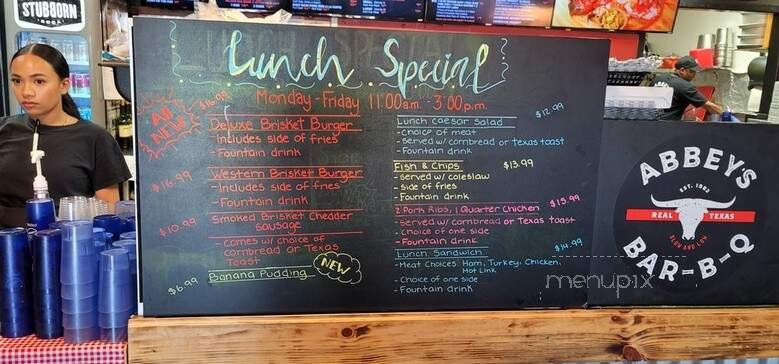 STUBBORN
SODA
Lunch Special
Monday - Friday 11:00am - 3:00p.m.
All NEW
$16.99
Deluxe Brisket Burger
- Includes side of fries
- Fountain drink
$16.99
Western Brisket Burger
- Includes side of fries
- Fountain drink
$10.99
Smoked Brisket Chedder
sausage
- comes w/ choice of
cornbread or Texas
Toast
Banana Pudding
NEW
$6.99
$12.99
Lunch Caesar Salad
- Choice of meat
- Served w/ cornbread or Texas toast
- Fountain drink
Fish & Chips
$13.99
- served w/ coleslaw
- side of fries
- Fountain drink
2 Pork Ribs, 1 Quarter Chicken
$15.99
- Served w/ cornbread or Texas toast
- Choice of one side
- Fountain drink
Lunch Sandwich
$14.99
- Meat Choices: Ham, Turkey, Chicken,
Hot Link
- Choice of one side
- Fountain drink
ABBEYS
EST. 1982
REAL TEXAS
SLOW AND LOW
BAR-B-Q
menupix